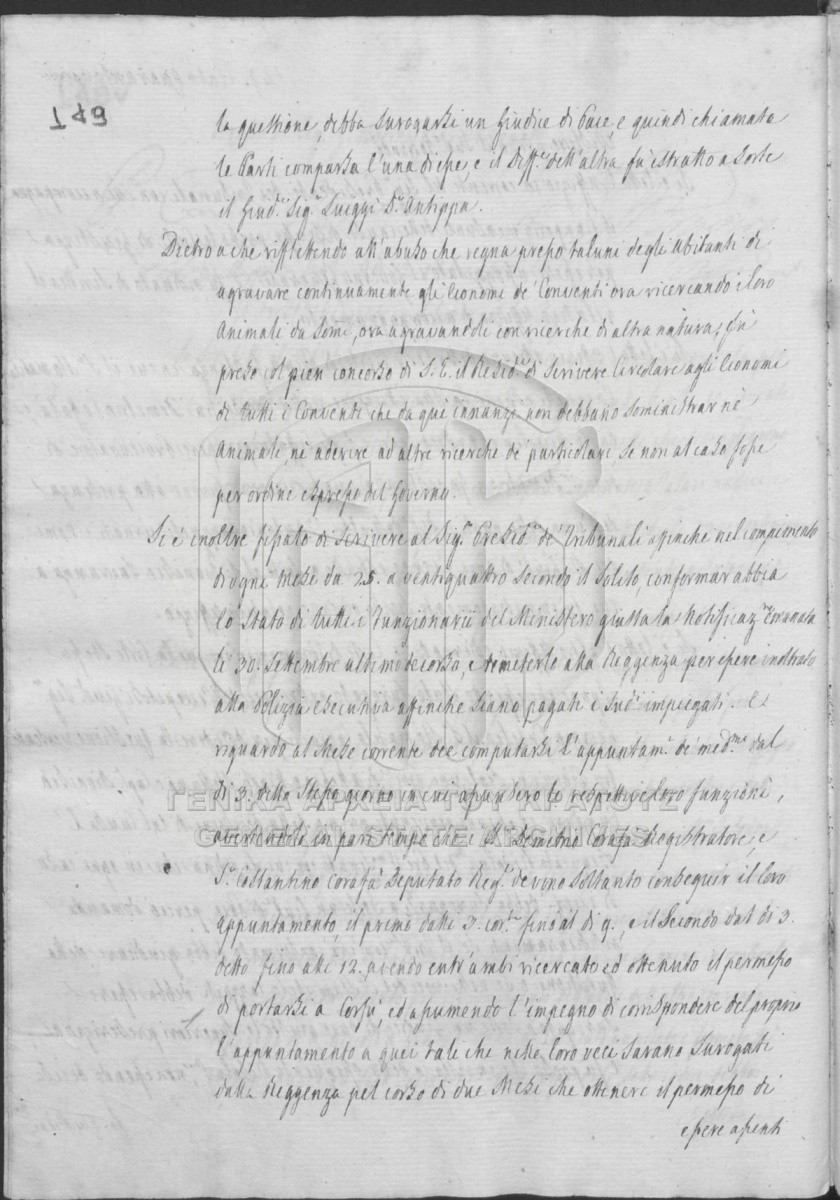 149
la questione, debba surogarsi un Giudice di Pace, e quindi chiamate
le Parti comparsa l'una di esse, e il Diff.e dell'altra fù estratto a sorte
il Giud.e Sig.r Luiggi D.r Antippa.
Dietro a che riflettendo all'abuso che regna presso taluni degli abitanti di
agravare continuamente gli Economi de' Conventi ora ricercando i loro
Animali da Some, ora agravandoli con ricerche di altra natura; fù
preso col pien concorso di S. E. il Resid.e di scrivere Circolare agli Economi
di tutti i Conventi che da quì innanzi non debbano sominstrar nè
Animali, nè aderire ad altre ricerche de' particolari se non al caso fosse
per ordine espresso del Governo.
Si è inoltre fissato di scrivere al Sig.r Presid.e de' Tribunali affinche nel compimento
di ogni Mese da 25. a ventiquattro secondo il solito, conformar abbia
lo Stato di tutti i Funzionarii del Ministero giusta la Notificaz.e Emanata
li 30. Settembre ultimo decorso, e rimeterlo alla Reggenza per essere inoltrato
alla Polizia Esecutiva affinche siano pagati i sud.i impiegati. E
riguardo al Mese corrente dee computarsi l'appuntam.o de' med.mi dal
di 3. detto stesso giorno in cui assunsero le respettive loro funzioni,
avertendolo in pari tempo che i S.r Demetrio Corafà Registratore, e
S.r Costantino Corafà Deputato Reg.e devino soltanto conseguir il loro
appuntamento, il primo dalli 3. cor.te fino al di 9., e il secondo dal di 3.
detto fino alli 12. avendo entr'ambi ricercato ed ottenuto il permesso
di portarsi a Corfù, ed assumendo l'impegno di corrispondere del proprio
l'appuntamento a quei tali che nelle loro veci sarano surogati
dalla Reggenza pel corso di due Mesi che ottenere il permesso di
essere assenti
ΓΕΝΙΚΑ ΑΡΧΕΙΑ ΤΟΥ ΚΡΑΤΟΥΣ
GENERAL STATE ARCHIVES